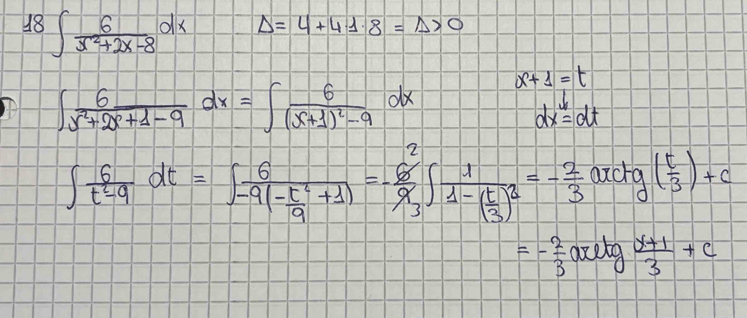 18 ∫ 6/(x²+2x-8) dx Δ = 4+4·1·8 = Δ>0
∫ 6/(x²+2x+1-9) dx = ∫ 6/((x+1)²-9) dx x+1 = t
↓
dx = dt
∫ 6/(t²-9) dt = ∫ 6/(-9(-t²/9 +1)) = -6/9 2 3 ∫ 1/(1-(t/3)²) = -2/3 arctg (t/3) + c
= -2/3 arctg (x+1)/3 + c